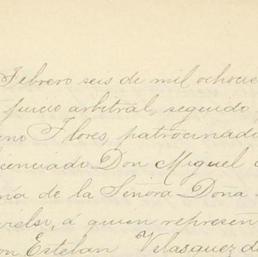 Febrero seis de mil ochocie
juicio arbitral, seguido
no Flores, patrocinado
icenciado Don Miguel
ía de la Señora Doña
á quien represen
on Esteban Velasquez d